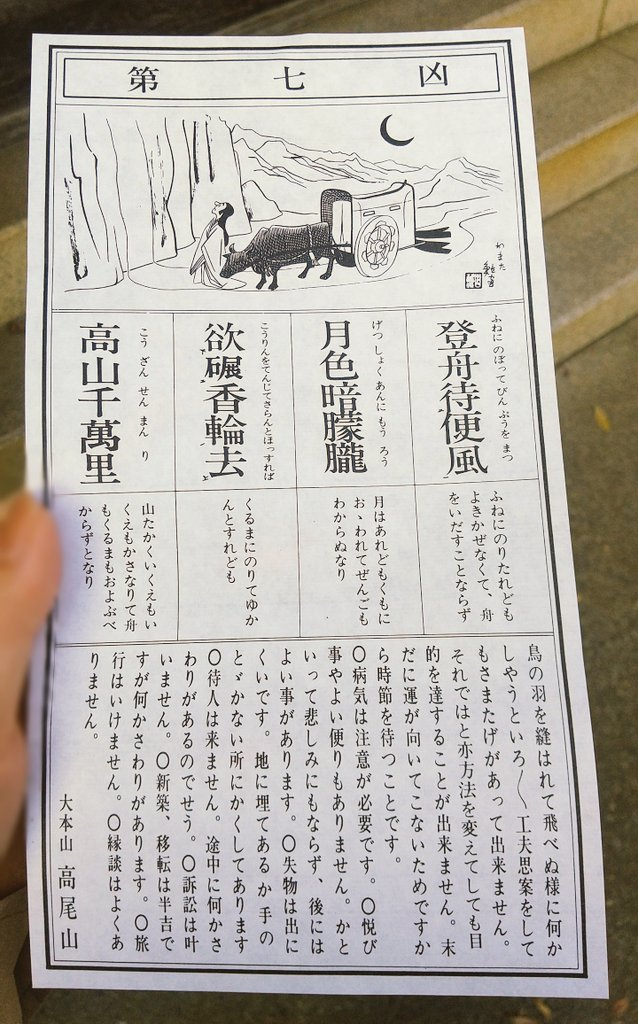 第七凶
わまた
ふねに のぼって びん ぷうを まつ
登舟待便風
げっ しょく あんに もう ろう
月色暗朦朧
こうりんをてんじてさらんとほっすれば
欲碾香輪去
こう ざん せん まん り
高山千萬里
ふねにのりたれども
よきかぜなくて、舟
をいだすことならず
月はあれどもくもに
おゝわれてぜんごも
わからぬなり
くるまにのりてゆか
んとすれども
山たかくいくえもい
くえもかさなりて舟
もくるまもおよぶべ
からずとなり
鳥の羽を縫はれて飛べぬ様に何か
しやうといろ〱工夫思案をして
もさまたげがあって出来ません。
それではと亦方法を変えてしても目
的を達することが出来ません。末
だに運が向いてこないためですか
ら時節を待つことです。
〇病気は注意が必要です。〇悦び
事やよい便りもありません。かと
いって悲しみにもならず、後には
よい事があります。〇失物は出に
くいです。地に埋てあるか手の
とゞかない所にかくしてあります
〇待人は来ません。途中に何かさ
わりがあるのでせう。〇訴訟は叶
いません。〇新築、移転は半吉で
すが何かさわりがあります。〇旅
行はいけません。〇縁談はよくあ
りません。
大本山 高尾山